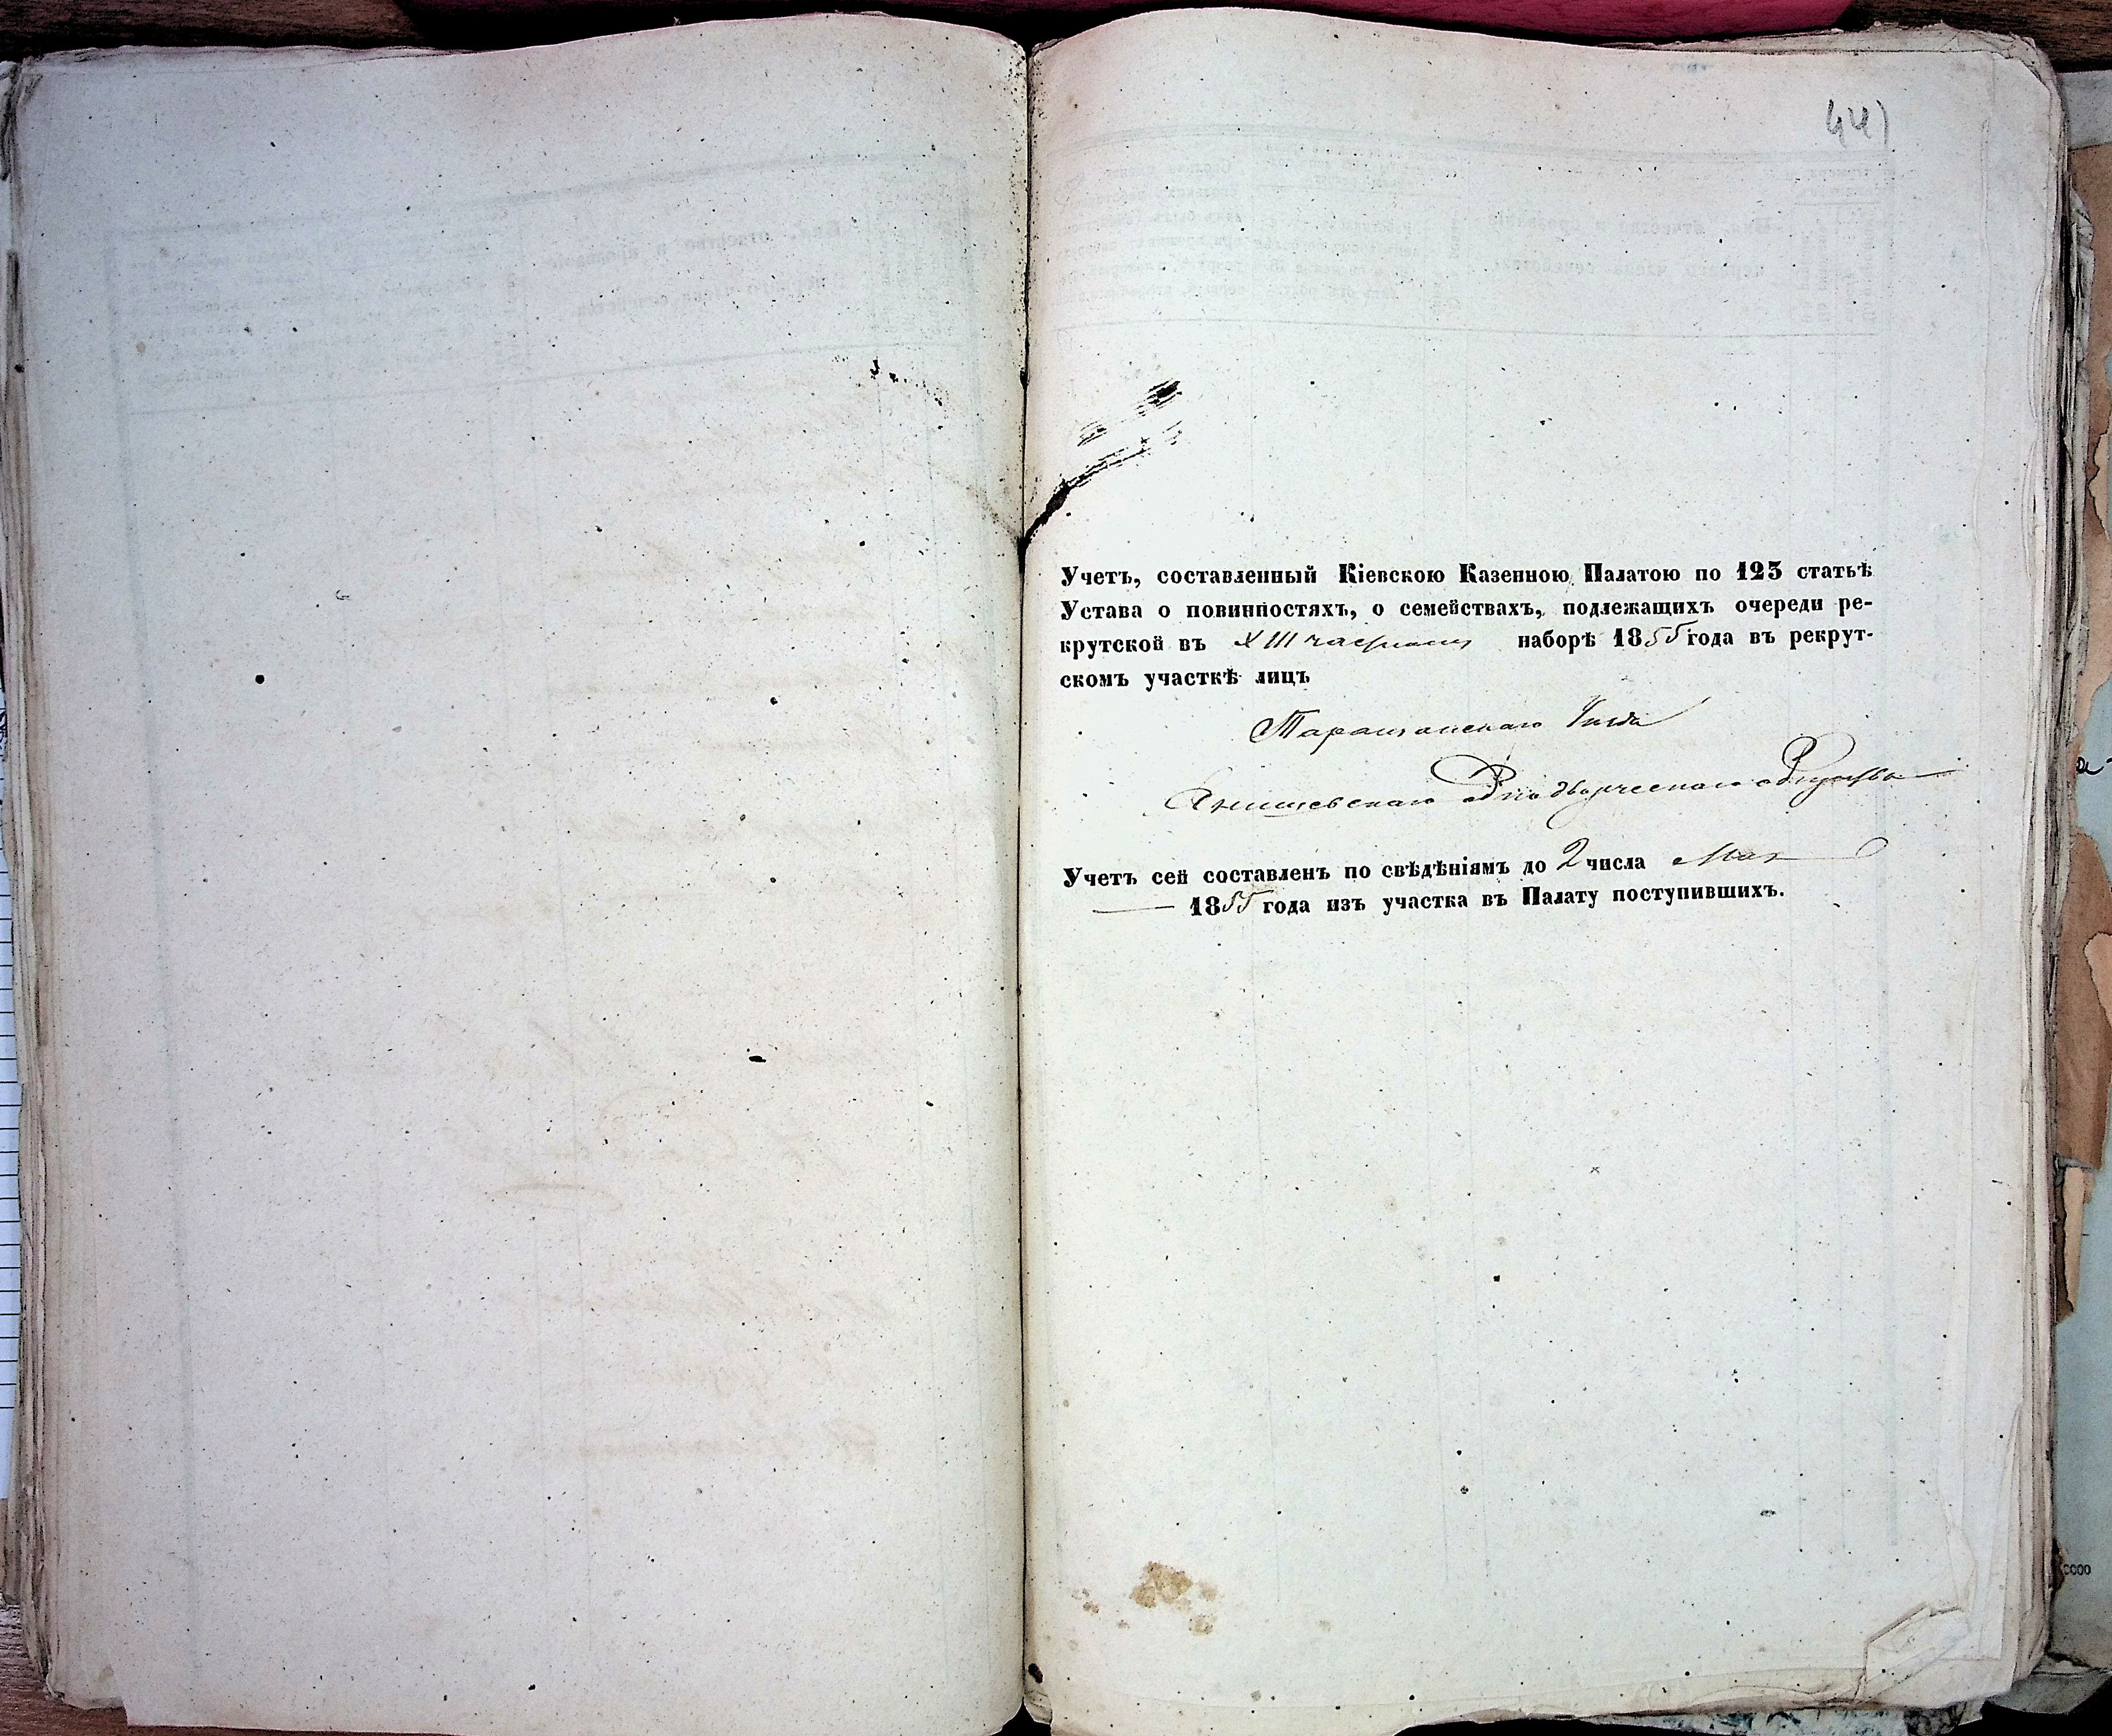 441
Учетъ, составленный Кіевскою Казенною Палатою по 123 статьѣ
Устава о повинностяхъ, о семействахъ, подлежащихъ очереди ре-
крутской въ XIII частномъ наборѣ 1855 года въ рекрут-
скомъ участкѣ лицъ
Таращанскаго Уѣзда
Однодворческаго Общества
Учетъ сей составленъ по свѣдѣніямъ до 2 числа Мая
1855 года изъ участка въ Палату поступившихъ.